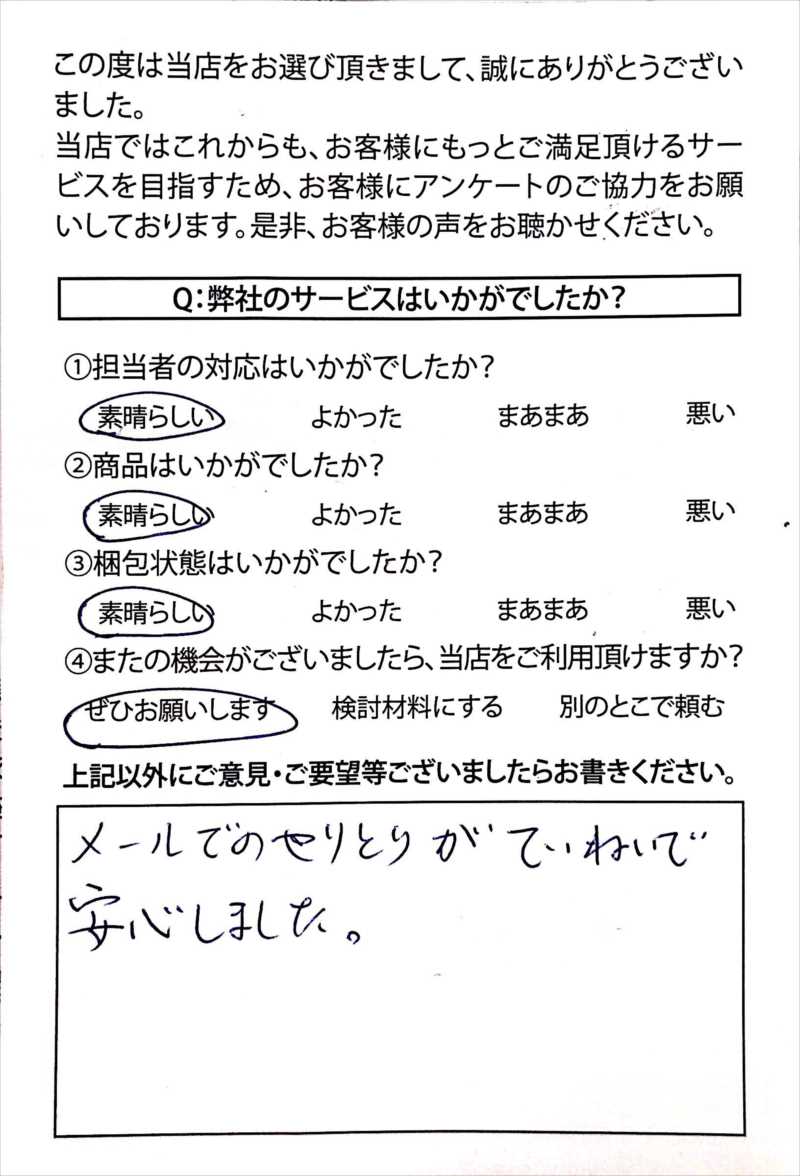 この度は当店をお選び頂きまして、誠にありがとうござい
ました。
当店ではこれからも、お客様にもっとご満足頂けるサー
ビスを目指すため、お客様にアンケートのご協力をお願
いしております。是非、お客様の声をお聴かせください。
Q:弊社のサービスはいかがでしたか?
①担当者の対応はいかがでしたか?
素晴らしい よかった まあまあ 悪い
②商品はいかがでしたか?
素晴らしい よかった まあまあ 悪い
③梱包状態はいかがでしたか?
素晴らしい よかった まあまあ 悪い
④またの機会がございましたら、当店をご利用頂けますか?
ぜひお願いします 検討材料にする 別のとこで頼む
上記以外にご意見・ご要望等ございましたらお書きください。
メールでのやりとりがていねいで
安心しました。